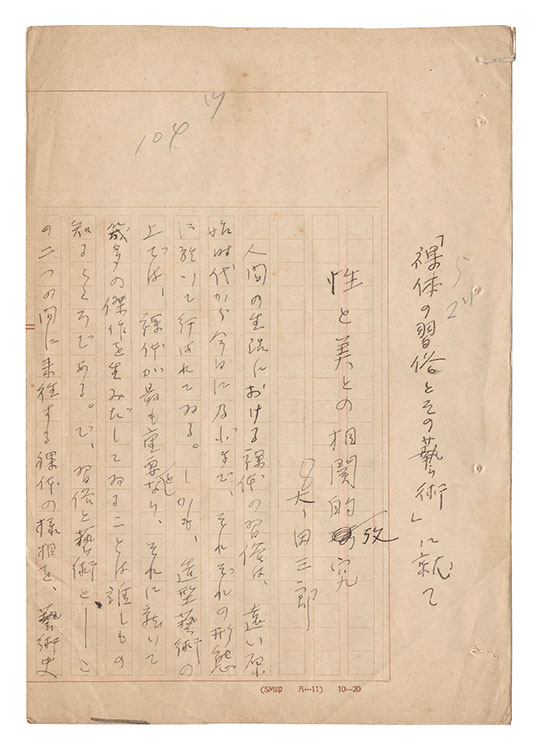 「裸体の習俗とその藝術」に就て
性と美との相関的攷究
太田三郎
人間の生活における裸体の習俗は、遠い原
始時代から今日に及ぶまで、それぞれの形態
に於いて行はれてゐる。しかも、造型藝術の
上では、裸体が最も重要となり、それに就いて
幾多の傑作を生みだしてゐることは誰しもの
知るところである。で、習俗と藝術と──こ
の二つの間に来往する裸体の様相を、藝術史
104
(SM印 A…11) 10…20